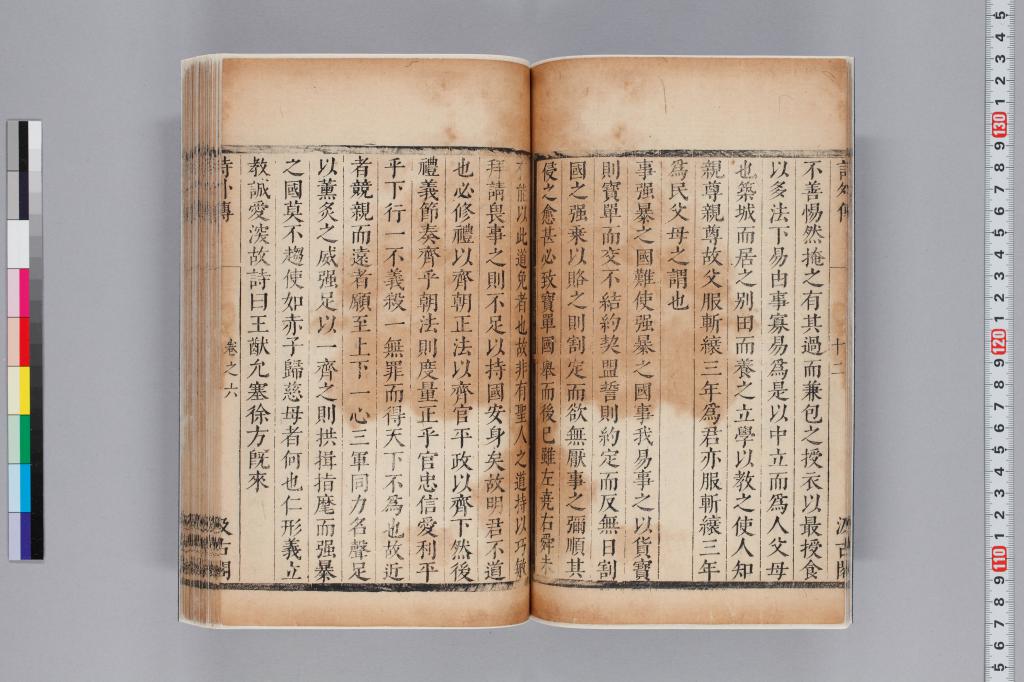 詩外傳 十二 汲古閣
不善惕然掩之有其過而兼包之授衣以最授食
以多法下易由事寡易爲是以中立而爲人父母
也築城而居之别田而養之立學以教之使人知
親尊親尊故父服斬縗三年爲君亦服斬縗三年
爲民父母之謂也
事强暴之國難使强暴之國事我易事之以貨寶
則寶單而交不結約契盟誓則約定而反無日割
國之强乗以賂之則割定而欲無厭事之彌順其
侵之愈甚必致寶單國舉而後已雖左堯右舜未
有能以此道免者也故非有聖人之道持以巧敏
拜請畏事之則不足以持國安身矣故明君不道
也必修禮以齊朝正法以齊官平政以齊下然後
禮義節奏齊乎朝法則度量正乎官忠信愛利平
乎下行一不義殺一無罪而得天下不爲也故近
者競親而遠者願至上下一心三軍同力名聲足
以薰炙之威强足以一齊之則拱揖指麾而强暴
之國莫不趨使如赤子歸慈母者何也仁形義立
教誠愛深故詩曰王猷允塞徐方旣來
詩外傳 卷之六 汲古閣